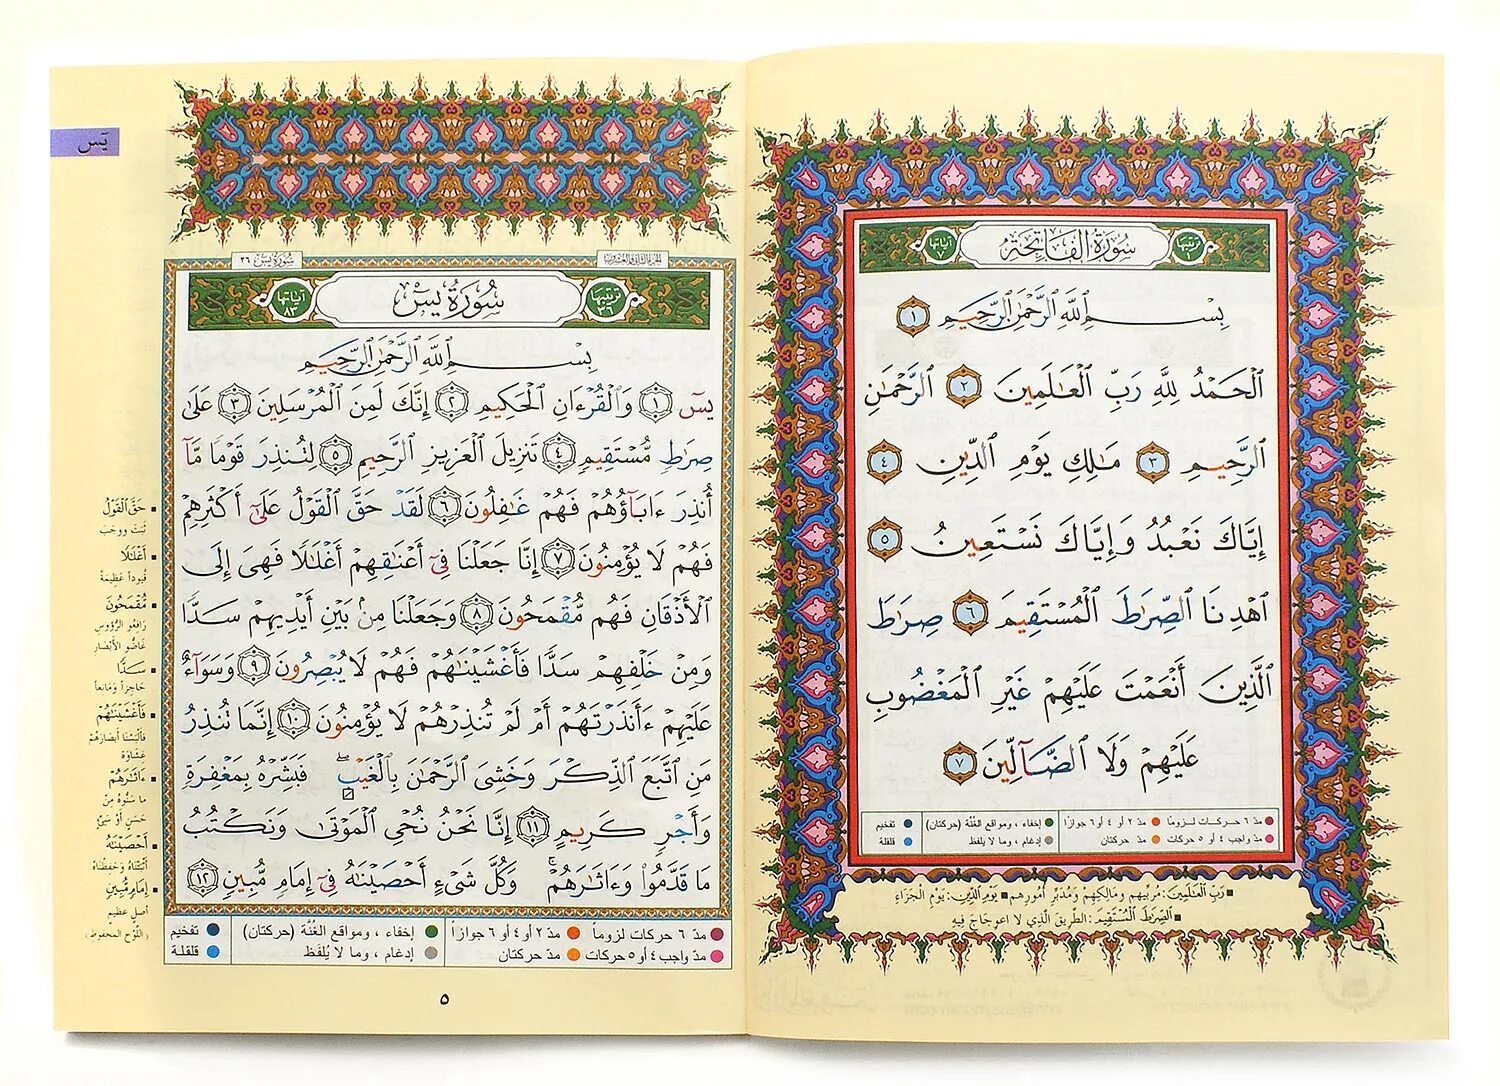 سُورَةُ الفَاتِحَةِ
ترتيبها ١
آياتها ٧
بِسْمِ ٱللَّهِ ٱلرَّحْمَٰنِ ٱلرَّحِيمِ ١
ٱلْحَمْدُ لِلَّهِ رَبِّ ٱلْعَٰلَمِينَ ٢ ٱلرَّحْمَٰنِ
ٱلرَّحِيمِ ٣ مَٰلِكِ يَوْمِ ٱلدِّينِ ٤
إِيَّاكَ نَعْبُدُ وَإِيَّاكَ نَسْتَعِينُ ٥
ٱهْدِنَا ٱلصِّرَٰطَ ٱلْمُسْتَقِيمَ ٦ صِرَٰطَ
ٱلَّذِينَ أَنْعَمْتَ عَلَيْهِمْ غَيْرِ ٱلْمَغْضُوبِ
عَلَيْهِمْ وَلَا ٱلضَّآلِّينَ ٧
مدّ ٦ حركات لزوماً مدّ ٢ أو ٤ أو ٦ جوازاً إخفاء ، ومواقع الغُنَّة (حركتان) تفخيم
مدّ واجب ٤ أو ٥ حركات مدّ حركتان إدغام ، وما لا يلفظ قلقلة
رَبِّ الْعَالَمِينَ: مُرَبِّيهِم وَمَالِكِهِمْ وَمُدَبِّرِ أُمُورِهِم يَوْمِ الدِّينِ: يَوْمِ الْجَزَاءِ
الصِّرَاطَ الْمُسْتَقِيمَ: الطَّرِيقَ الَّذِي لا اعوجَاجَ فِيهِ
يٓسٓ
الجزء الثاني والعشرون
سُورَةُ يسٓ ٣٦
ترتيبها ٣٦
سُورَةُ يسٓ
آياتها ٨٣
بِسْمِ ٱللَّهِ ٱلرَّحْمَٰنِ ٱلرَّحِيمِ
يسٓ ١ وَٱلْقُرْءَانِ ٱلْحَكِيمِ ٢ إِنَّكَ لَمِنَ ٱلْمُرْسَلِينَ ٣ عَلَىٰ
صِرَٰطٍ مُّسْتَقِيمٍ ٤ تَنزِيلَ ٱلْعَزِيزِ ٱلرَّحِيمِ ٥ لِتُنذِرَ قَوْمًا مَّآ
أُنذِرَ ءَابَآؤُهُمْ فَهُمْ غَٰفِلُونَ ٦ لَقَدْ حَقَّ ٱلْقَوْلُ عَلَىٰٓ أَكْثَرِهِمْ
فَهُمْ لَا يُؤْمِنُونَ ٧ إِنَّا جَعَلْنَا فِىٓ أَعْنَٰقِهِمْ أَغْلَٰلًا فَهِىَ إِلَى
ٱلْأَذْقَانِ فَهُم مُّقْمَحُونَ ٨ وَجَعَلْنَا مِنۢ بَيْنِ أَيْدِيهِمْ سَدًّا
وَمِنْ خَلْفِهِمْ سَدًّا فَأَغْشَيْنَٰهُمْ فَهُمْ لَا يُبْصِرُونَ ٩ وَسَوَآءٌ
عَلَيْهِمْ ءَأَنذَرْتَهُمْ أَمْ لَمْ تُنذِرْهُمْ لَا يُؤْمِنُونَ ١٠ إِنَّمَا تُنذِرُ
مَنِ ٱتَّبَعَ ٱلذِّكْرَ وَخَشِىَ ٱلرَّحْمَٰنَ بِٱلْغَيْبِ ۖ فَبَشِّرْهُ بِمَغْفِرَةٍ
وَأَجْرٍ كَرِيمٍ ١١ إِنَّا نَحْنُ نُحْىِ ٱلْمَوْتَىٰ وَنَكْتُبُ
مَا قَدَّمُوا۟ وَءَاثَٰرَهُمْ ۚ وَكُلَّ شَىْءٍ أَحْصَيْنَٰهُ فِىٓ إِمَامٍ مُّبِينٍ ١٢
حَقَّ الْقَوْلُ
ثَبَتَ وَوَجَبَ
أَغْلَالًا
قُيُوداً عَظِيمَةً
مُقْمَحُونَ
رَافِعُو الرُّؤُوسِ
غَاضُّو الأَبْصَارِ
سَدًّا
حَاجِزاً وَمَانِعاً
فَأَغْشَيْنَاهُمْ
فَأَلْبَسْنَا أَبْصَارَهُمْ
غِشَاوَة
ءَاثَارَهُمْ
مَا سَنُّوهُ مِنْ
حَسَنٍ أَوْ سَيِّئٍ
أَحْصَيْنَاهُ
أَثْبَتْنَاهُ وَحَفِظْنَاهُ
إِمَامٍ مُبِينٍ
أصل عظيم
(اللَّوْحِ المحفوظِ)
مدّ ٦ حركات لزوماً مدّ ٢ أو ٤ أو ٦ جوازاً إخفاء ، ومواقع الغُنَّة (حركتان) تفخيم
مدّ واجب ٤ أو ٥ حركات مدّ حركتان إدغام ، وما لا يُلفَظ قلقلة
٥